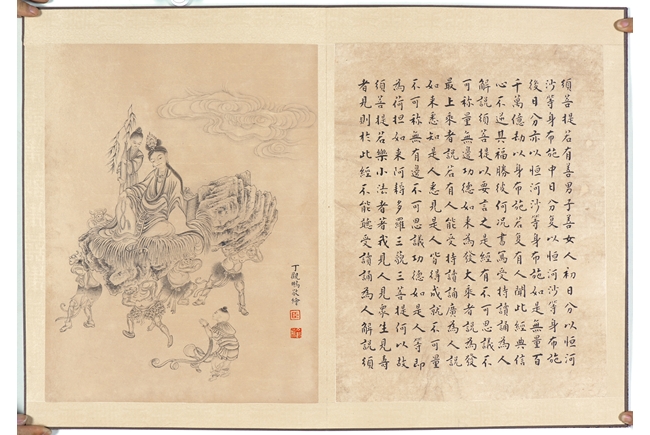 須菩提若有善男子善女人初日分以恒河
沙等身布施中日分復以恒河沙等身布施
後日分亦以恒河沙等身布施如是無量百
千萬億劫以身布施若復有人聞此經典信
心不逆其福勝彼何況書寫受持讀誦為人
解說須菩提以要言之是經有不可思議不
可稱量無邊功德如來為發大乘者說為發
最上乘者說若有人能受持讀誦廣為人說
如來悉知是人悉見是人皆得成就不可量
不可稱無有邊不可思議功德如是人等即
為荷担如來阿耨多羅三藐三菩提何以故
須菩提若樂小法者著我見人見眾生見壽
者見則於此經不能聽受讀誦為人解說須
丁觀鵬敬繪